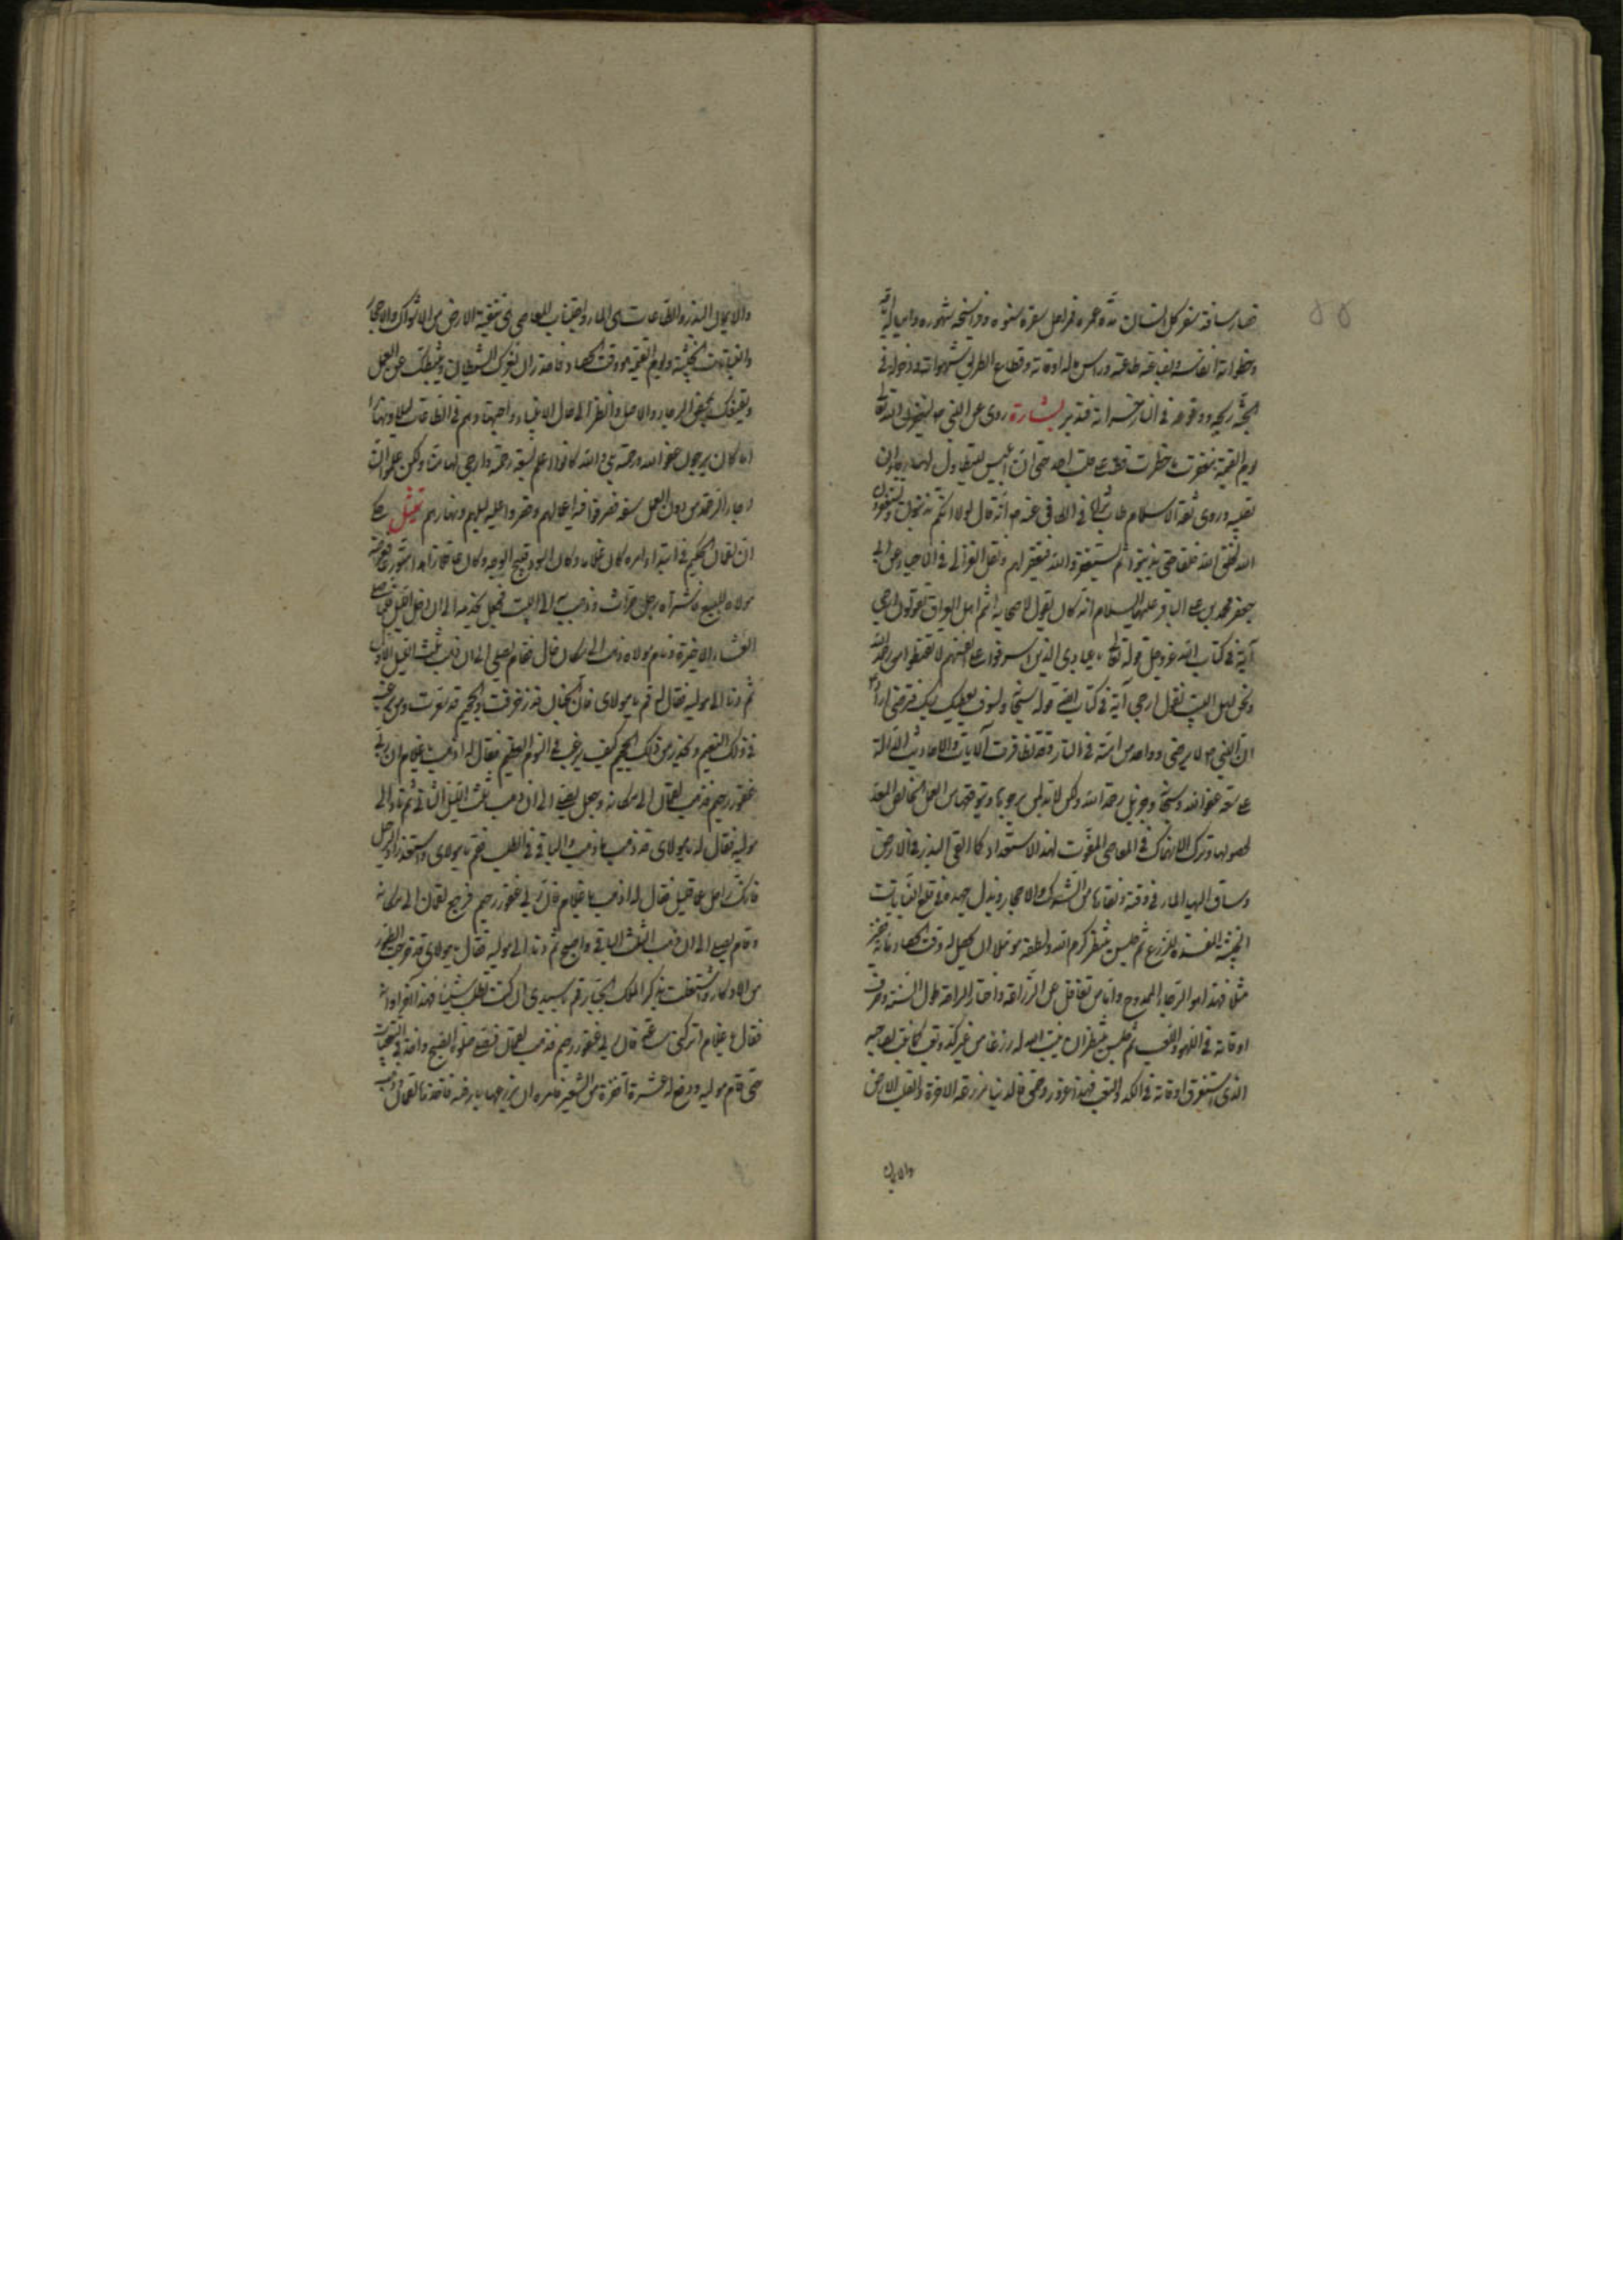 فصار مسافة سفر كل انسان مدة عمره فمراحل سفره سنوه وفراسخه شهوره وامياله ايامه
وخطواته انفاسه وبضاعته طاعته وراس ماله اوقاته وقطاع الطريق شهواته ودخوله في
الجنة ربحه ووقوعه في النار خسرانه فتدبر بشارة روى عن النبي ص ليغفرن الله تعالى
يوم القيمة مغفرة ما خطرت قط على قلب احد حتى ان ابليس ليتطاول لها رجاء ان
تصيبه وروى ثقة الاسلام طاب ثراه في الكافي عنه ص انه قال لولا انكم تذنبون وتستغفرون
الله لخلق الله خلقا حتى يذنبوا ثم يستغفروا الله فيغفر لهم ونقل الغزالي في الاحياء عن ابي
جعفر محمد بن علي الباقر عليهما السلام انه كان يقول لاصحابه انتم اهل العراق تقولون ارجى
آية في كتاب الله عز وجل قوله تعالى يا عبادي الذين اسرفوا على انفسهم لا تقنطوا من رحمة الله
ونحن اهل البيت نقول ارجى آية في كتاب الله قوله سبحانه ولسوف يعطيك ربك فترضى اراد
ان النبي ص لا يرضى وواحد من امته في النار وقد تظافرت الآيات والاحاديث الدالة
على سعة عفو الله وسبحانه وجزيل رحمة الله ولكن لا بد لمن يرجوها ويتوقعها من العمل الخالص المعد
لحصولها وترك الانهماك في المعاصي المفوت لهذا الاستعداد كما القى البذر في الارض
وساق اليه الماء في وقته ونقاها من الشوك والاحجار وبذل جهده في قلع النباتات
الخبيثة المفسدة للزرع ثم جلس ينتظر كرم الله ولطفه مؤملا ان يحصل له وقت الحصاد مائة قفيز
مثلا فهذا هو الرجاء الممدوح واما من تغافل عن الزراعة واختار الراحة طول السنة وصرف
اوقاته في اللهو واللعب ثم جلس ينتظر ان ينبت الله له زرعا من غير كد وتعب كما نبت لصاحبه
الذي استغرق اوقاته في الكد والتعب فهذا غرور وحمق فالدنيا مزرعة الاخرة والقلب الارض
والايمان
والايمان البذر والطاعات هي الماء واجتناب المعاصي هي تنقية الارض من الاشواك والاحجار
والنباتات الخبيثة ويوم القيمة هو وقت الحصاد فاحذر ان يغرك الشيطان ويثبطك عن العمل
ويقنعك بمحض الرجاء والامل وانظر الى حال الانبياء واجتهادهم في الطاعات ليلا ونهارا
اما كانوا يرجون عفو الله ورحمته بلى والله كانوا اعلم بسعة رحمته وارجى لها منك ولكن علموا ان
رجاء الرحمة من دون العمل سفه فصرفوا فيه اعمالهم وقصروا عليه ليلهم ونهارهم تمثيل حكى
ان لقمان الحكيم في ابتداء امره كان غلاما وكان اسود قبيح الوجه وكان عاقلا زاهدا
مولاه للبيع فاشتراه رجل حراث وذهب به الى البيت فجعل يخدمه الى ان دخل الليل
العشاء الاخرة ونام مولاه وذهب الى مكان خال فقام يصلي الى ان ذهب ثلث الليل الاول
ثم دنا الى موليه فقال له قم يا مولاى فان الجنان قد زخرفت والجحيم قد سعرت ومن رغب
في ذلك النعيم وحذر من ذلك الجحيم كيف يرغب في النوم العظيم فقال له اذهب يا غلام ان ربي
غفور رحيم فذهب لقمان الى مكانه وجعل يصلي الى ان ذهب ثلث الليل الثاني ثم دنا الى
موليه فقال له يا مولاى قد ذهب ما ذهب والباقي في الطلب فقم يا مولاى واستعد زاد الرحل
فانك راحل عما قليل فقال له اذهب يا غلام فان ربي غفور رحيم فرجع لقمان الى مكانه
وقام يصلي الى ان ذهب الثلث الباقي واصبح ثم دنا الى موليه فقال يا مولاى قد خرجت الطيور
من الاوكار واشتغلت بذكر الملك الجبار قم يا سيدي ان كنت تطلب شيئا فهذا آخر اوانه
فقال يا غلام اتركني ساعة فان ربي غفور رحيم فذهب لقمان فصلى صلوة الصبح واخذ في التعقيبات
حتى قام موليه ودفع له عشرة اقفزة من الشعير وامره ان يزرعها بارضه فاخذها لقمان وذهب